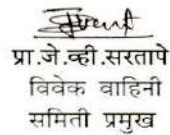 प्रा.जे.व्ही.सरतापे
विवेक वाहिनी
समिती प्रमुख